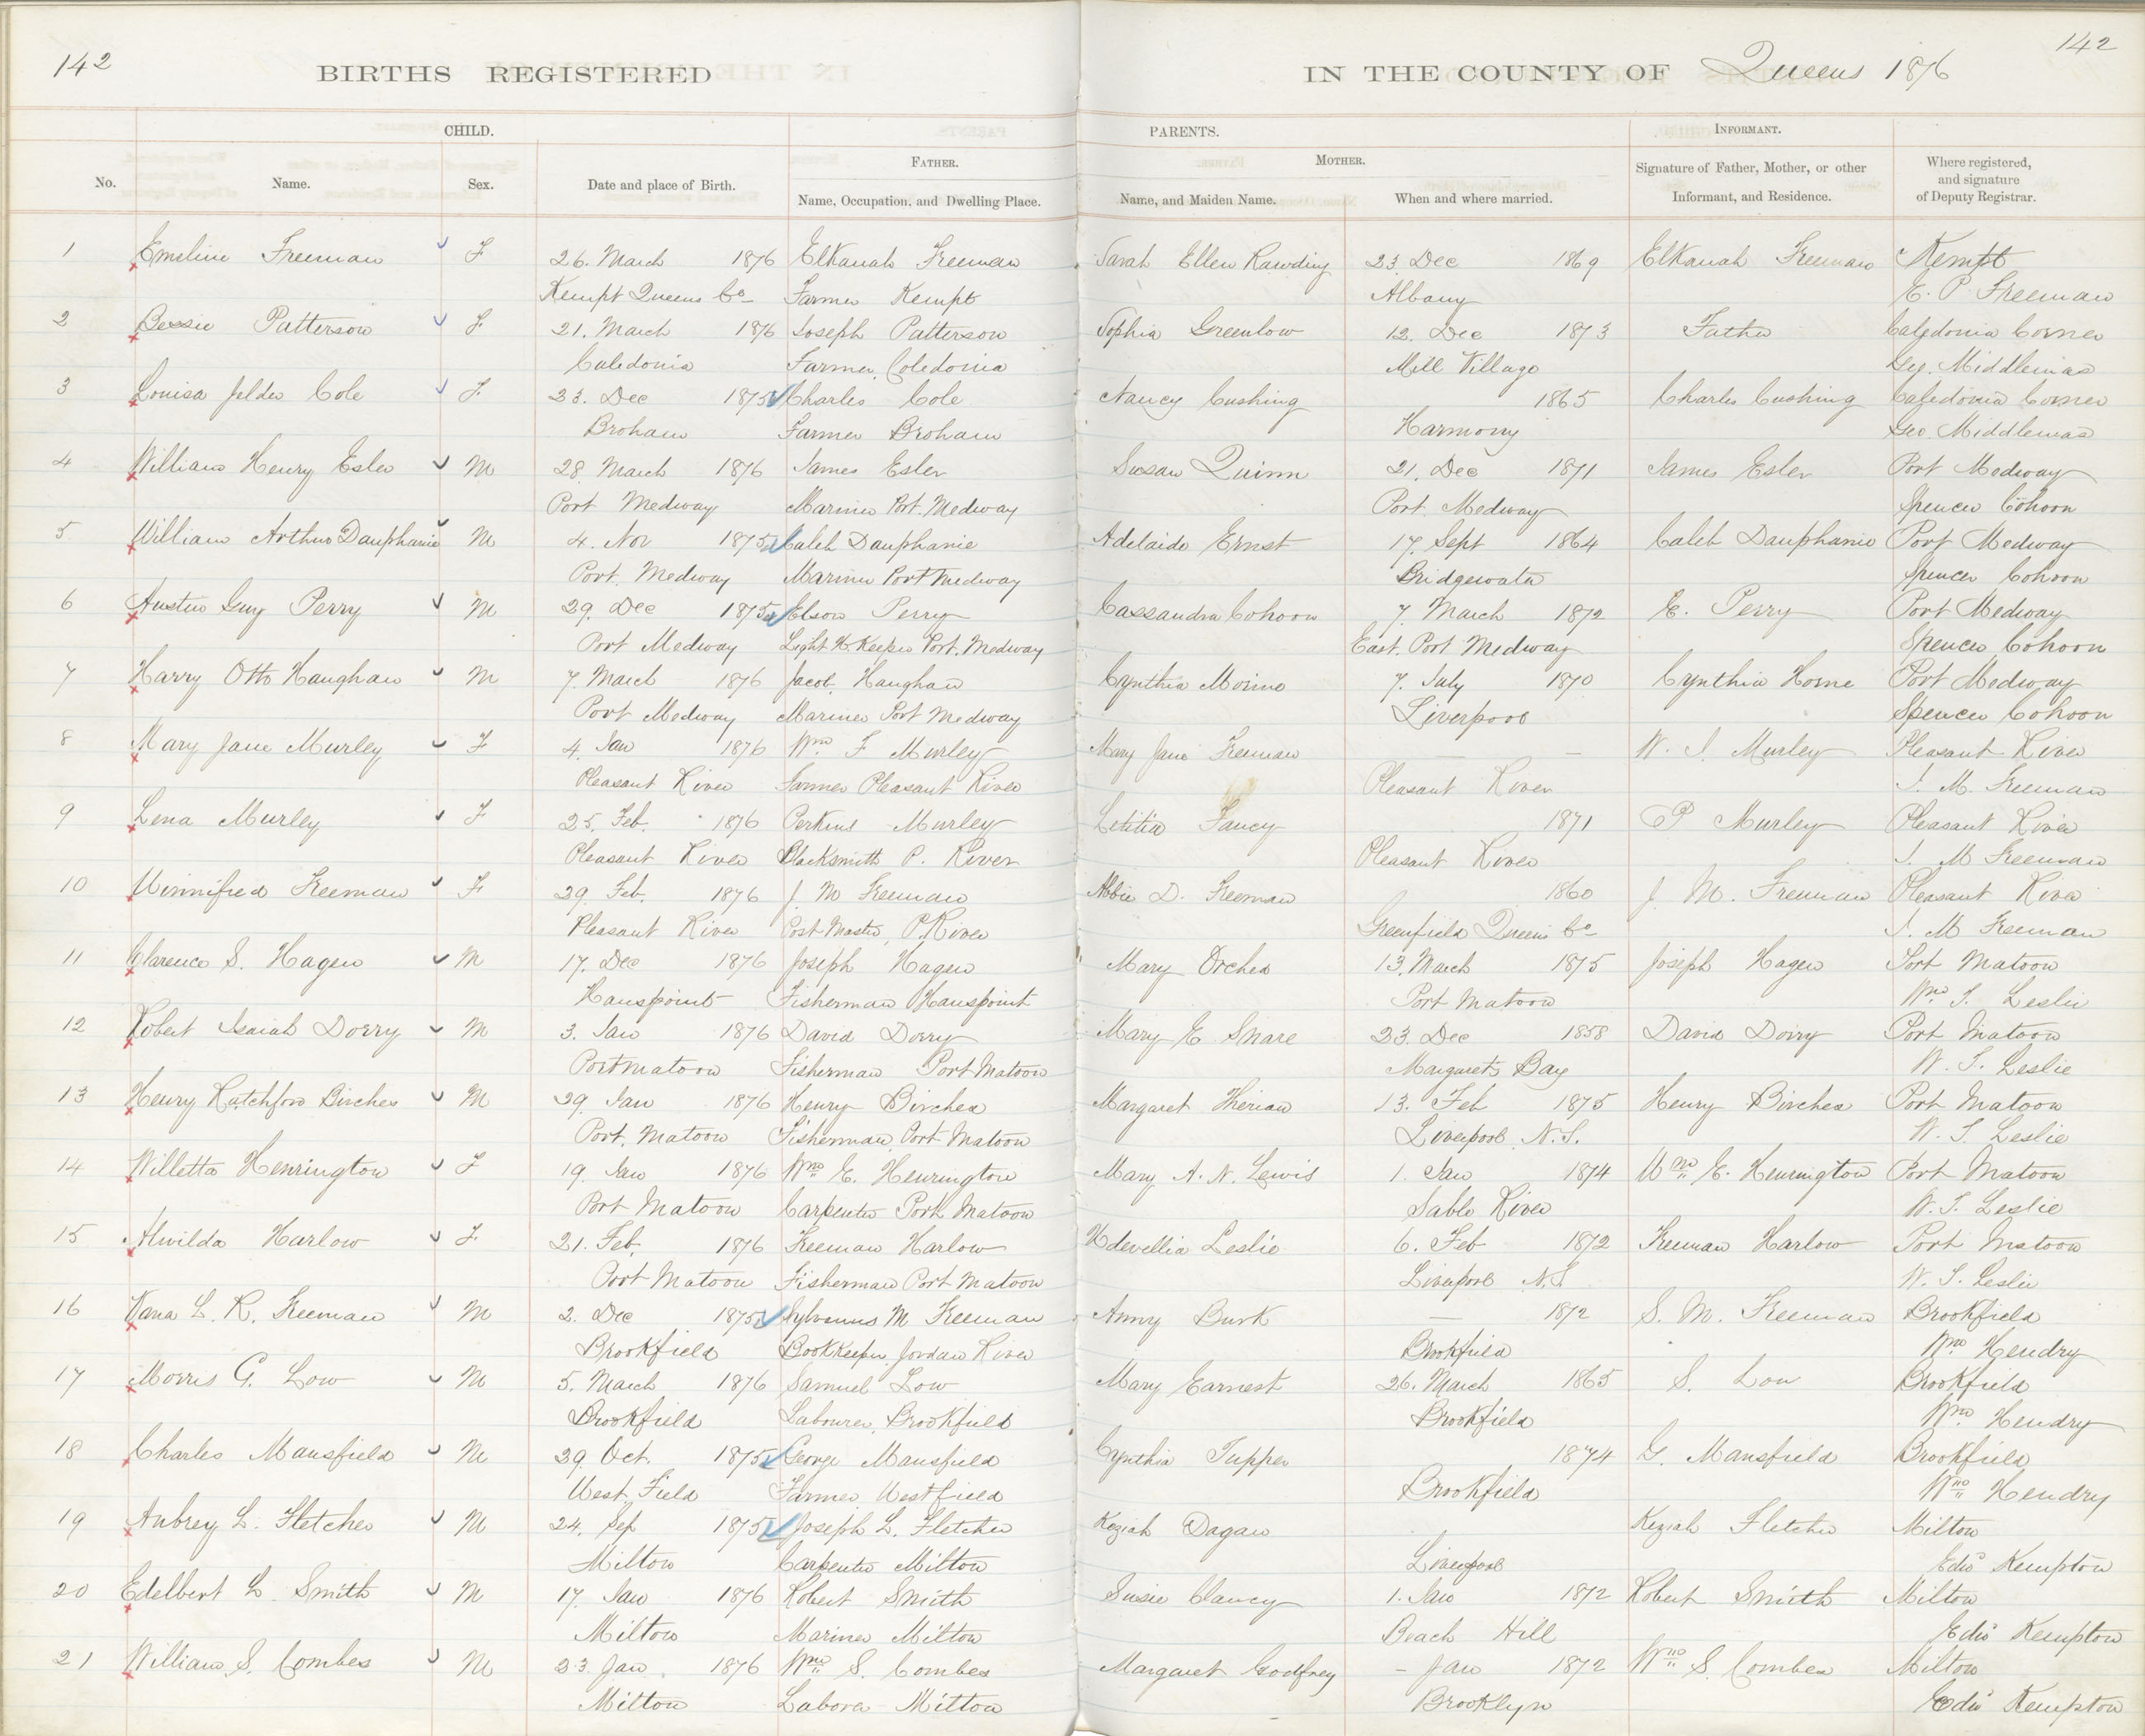 142
142
BIRTHS REGISTERED
IN THE COUNTY OF Queens 1876
CHILD.
PARENTS.
INFORMANT.
FATHER.
MOTHER.
No.
Name.
Sex.
Date and place of Birth.
Name, Occupation, and Dwelling Place.
Name, and Maiden Name.
When and where married.
Signature of Father, Mother, or other
Informant, and Residence.
Where registered,
and signature
of Deputy Registrar.
1 Emeline Freeman F 26. March 1876 Elkanah Freeman Sarah Ellen Rawding 23. Dec 1869 Elkanah Freeman Kempt
Kempt Queens Co Farmer Kempt Albany E. P Freeman
2 Bessie Patterson F 21. March 1876 Joseph Patterson Sophia Greenlow 12. Dec 1873 Father Caledonia Corner
Caledonia Farmer, Caledonia Mill Village Geo. Middlemas
3 Louisa Cole F 23. Dec 1875 Charles Cole Nancy Cushing 1865 Charles Cushing Caledonia Corner
Broham Farmer Broham Harmony Geo. Middlemas
4 William Henry Esler M 28. March 1876 James Esler Susan Quinn 21. Dec 1871 James Esler Port Medway
Port Medway Mariner Port. Medway Port. Medway Spencer Cohoon
5. William Arthur Dauphanie M 4. Nov 1875 Caleb Dauphanie Adelaide Ernst 17. Sept 1864 Caleb Dauphanie Port Medway
Port. Medway Mariner Port Medway Bridgewater Spencer Cohoon
6 Austin Guy Perry M 29. Dec 1875 Elson Perry Cassandra Cohoon 7. March 1872 E. Perry Port Medway
Port Medway Light H. Keeper Port. Medway East. Port Medway Spencer Cohoon
7 Harry Otto Haughan M 7. March 1876 Jacob. Haughan Cynthia 7. July 1870 Cynthia Horne Port Medway
Port Medway Mariner Port Medway Liverpool Spencer Cohoon
8 Mary Jane Murley F 4. Jan 1876 Wm F Murley Mary Jane Freeman — W. Murley Pleasant River
Pleasant River Farmer Pleasant River Pleasant River J. M. Freeman
9 Lena Murley F 25. Feb. 1876 Perkins Murley Letitia Fancy 1871 P Murley Pleasant River
Pleasant River Blacksmith P. River Pleasant River J. M Freeman
10 Winnifred Freeman F 29. Feb. 1876 J. M Freeman Abbie D. Freeman 1860 J. M. Freeman Pleasant River
Pleasant River Post Master, P. River Greenfield Queens Co J. M Freeman
11 Clarence S. Hagen M 17. Dec 1876 Joseph Hagen Mary Orchea 13. March 1875 Joseph Hagen Port Matoon
Hanspoint Fisherman Hanspoint Port Matoon Wm S. Leslie
12 Robert Isaiah Dorry M 3. Jan 1876 David Dorry Mary E Snare 23. Dec 1858 David Dorry Port Matoon
Portmatoon Fisherman Port Matoon Margarets Bay W. S. Leslie
13 Henry Ratchford Birchea M 29. Jan 1876 Henry Birchea Margaret Therian 13. Feb 1875 Henry Birchea Port Matoon
Port. Matoon Fisherman, Port Matoon Liverpool N.S. W. S. Leslie
14 Willetta Henrington F 19. Jan 1876 Wm E. Henrington Mary A. N. Lewis 1. Jan 1874 Wm E. Henrington Port Matoon
Port Matoon Carpenter Port Matoon Sable River W. S. Leslie
15 Alwilda Harlow F 21. Feb. 1876 Freeman Harlow Udevellia Leslie 6. Feb 1872 Freeman Harlow Port Matoon
Port Matoon Fisherman Port Matoon Liverpool N.S. W. S. Leslie
16 Vana L. R. Freeman M 2. Dec 1875 Sylvanus M Freeman Anny Burk — 1872 S. M. Freeman Brookfield
Brookfield Bookkeeper, Jordan River Brookfield Wm Hendry
17 Morris G. Low M 5. March 1876 Samuel Low Mary Earnest 26. March 1865 S. Low Brookfield
Brookfield Labourer, Brookfield Brookfield Wm Hendry
18 Charles Mansfield M 29. Oct. 1875 George Mansfield Cynthia Tupper 1874 G. Mansfield Brookfield
West. Field Farmer, Westfield Brookfield Wm Hendry
19 Aubrey L. Fletcher M 24. Sep 1875 Joseph L. Fletcher Keziah Dagan Keziah Fletcher Milton
Milton Carpenter Milton Liverpool Edw Kempton
20 Edelbert L. Smith M 17. Jan 1876 Robert Smith Susie Clancy 1. Jan 1872 Robert Smith Milton
Milton Mariner Milton Beach Hill Edw Kempton
21 William S. Combes M 23. Jan. 1876 Wm S. Combes Margaret Godfrey – Jan 1872 Wm S. Combes Milton
Milton Labora Milton Brooklyn Edw Kempton